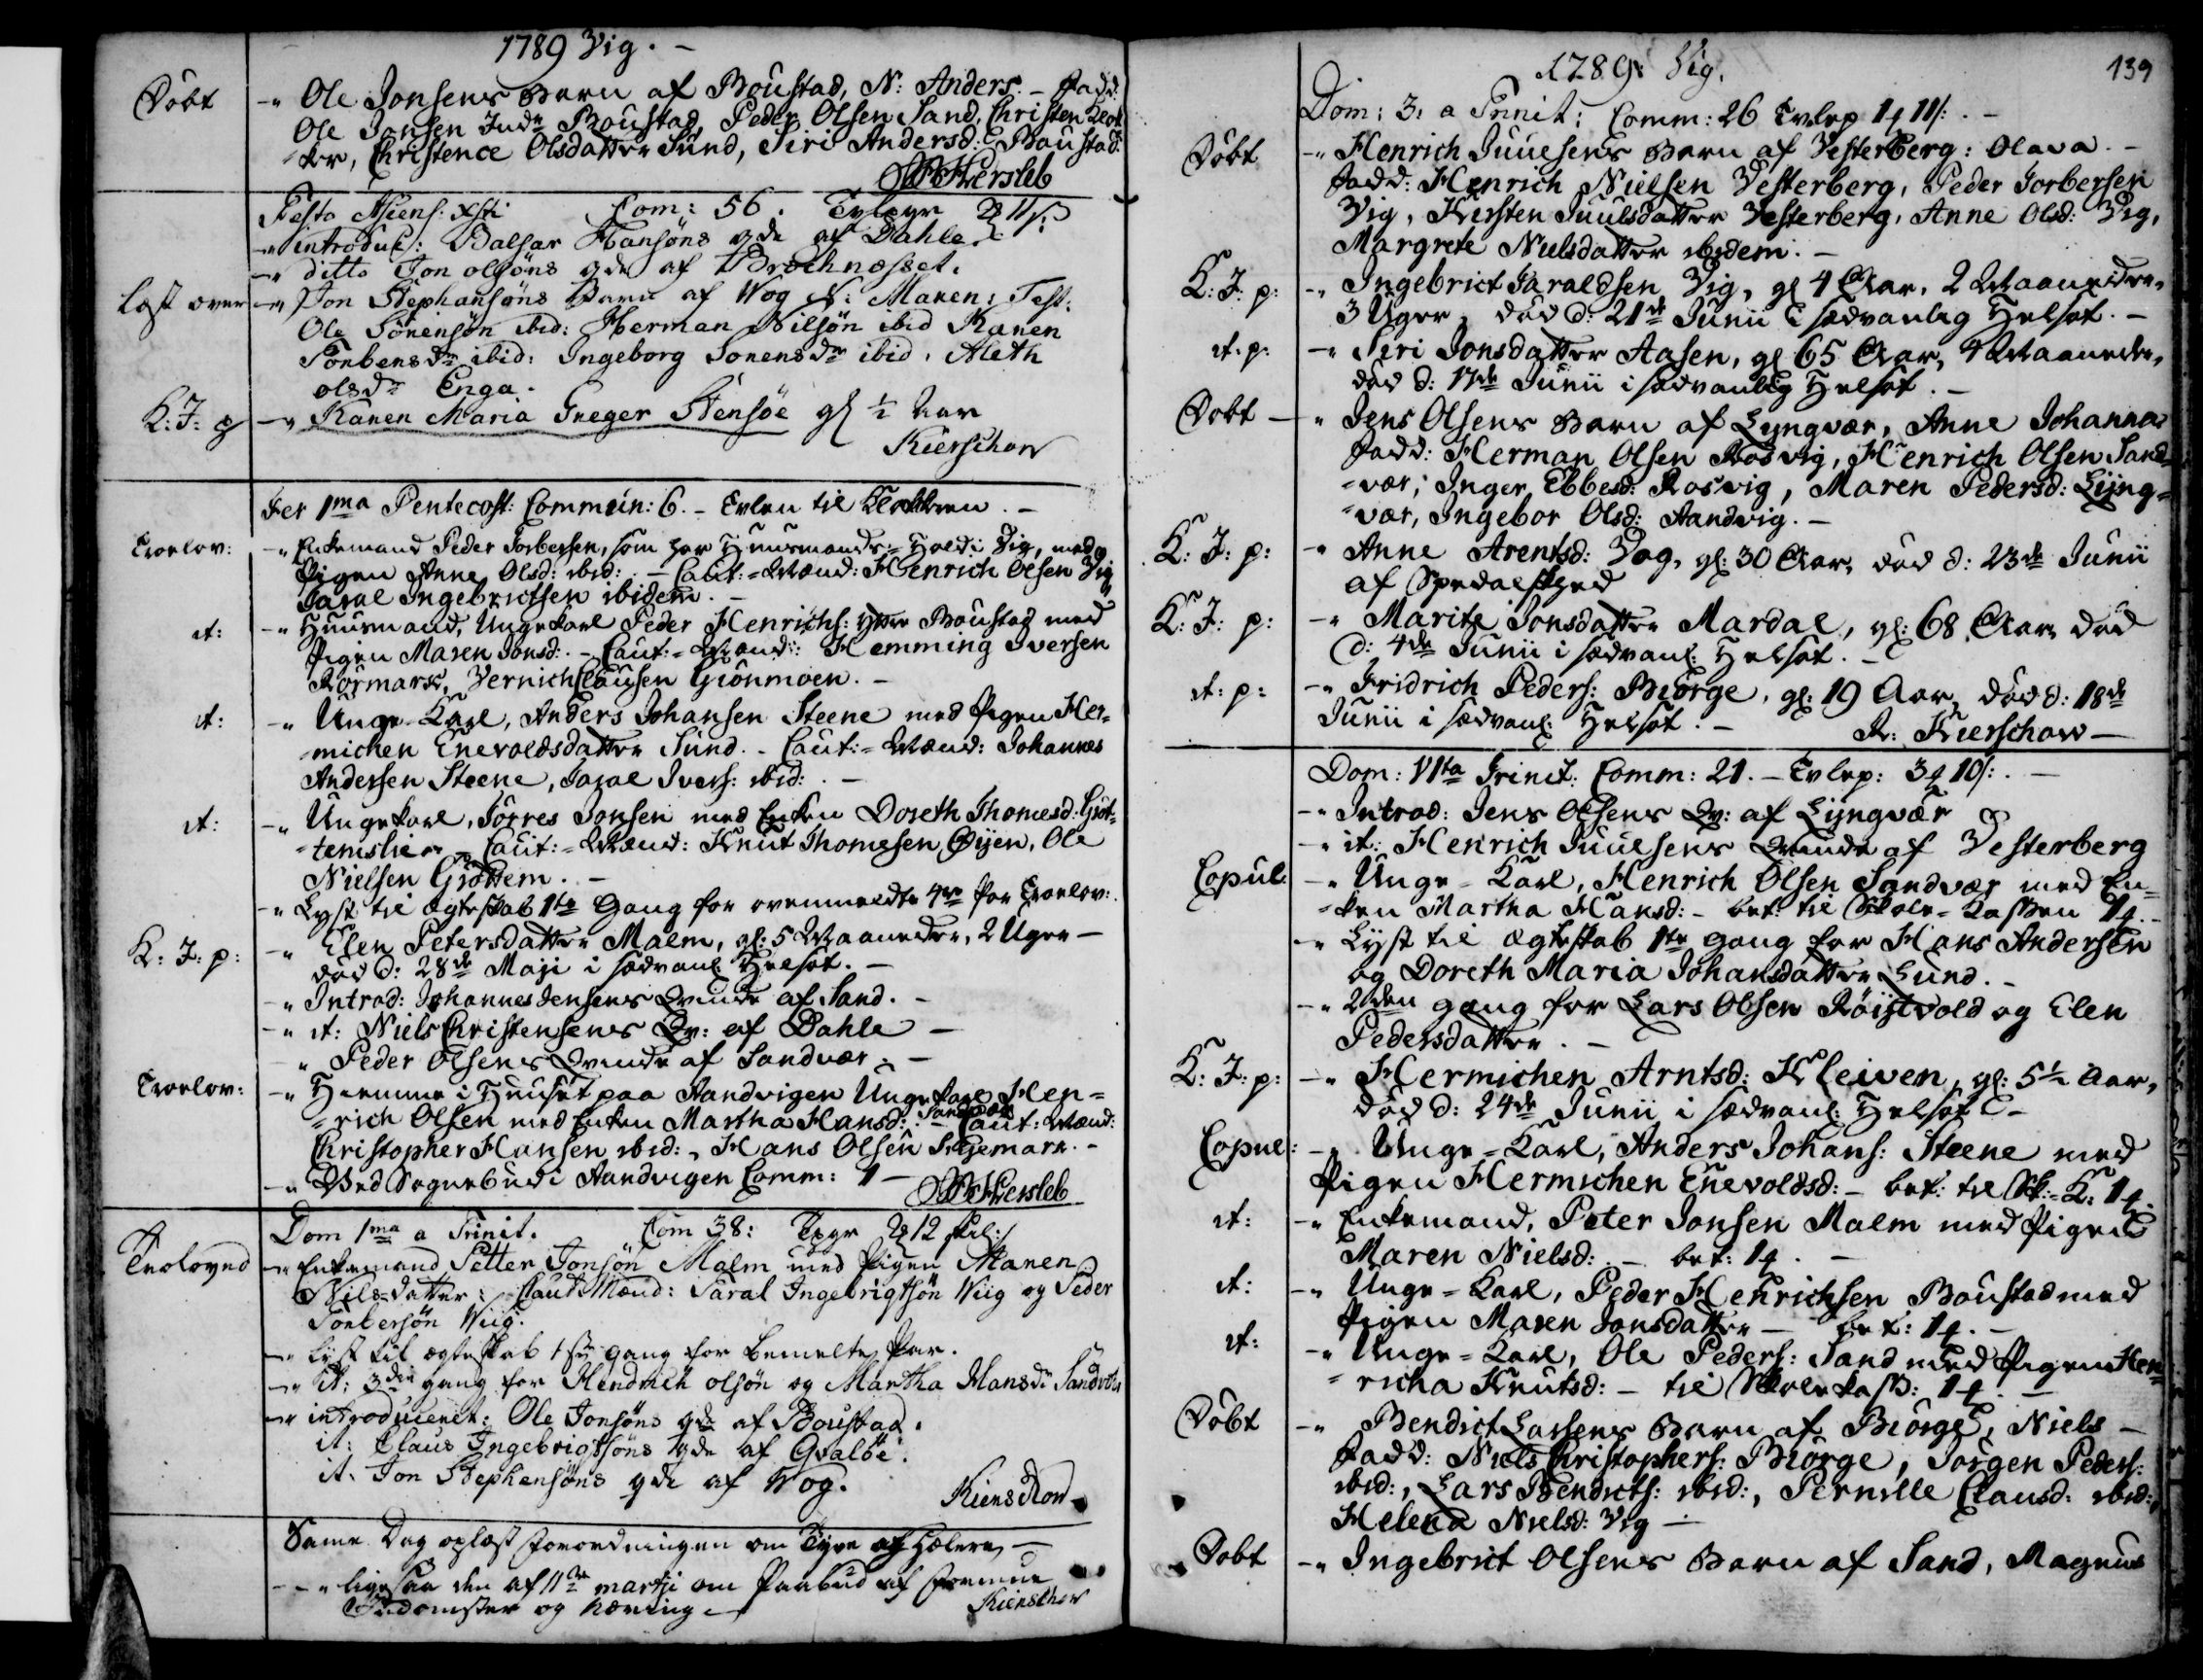 1789 Vig. -
Døbt -" Ole Jonsens Barn af Boustad, N: Anders. - Fadd:
Ole Jonsen Indr Boustad, Peder Olsen Sand, Christen Klok
-ker, Christence Olsdatter Sund, Siri Andersd: Boustad:
Hersleb
Festo Ascens: Xsti Com: 56.
-" introduc: Balsar Hansøns qde af Dahle
-" ditto Jon olsøns qde af Brechnæsset.
læst over -" Jon Stephansøns Barn af Wog N: Maren: Test:
Ole Sørensøn ibid: Herman Nilsøn ibid Karen
Torbensdr ibid: Ingeborg Sorensdr ibid. Aleth
olsdr Enga.
K: J: p -" Karen Maria Greger Stensøe gl ½ Aar
Kierschow
Fer 1ma Pentecost: Commun: 6. - Tvlen til Klokkeren. -
Troelov: -" Enkemand Peder Torbersen, som har Huusmands-Hold i Vig, med
Pigen Anne Olsd: ibid: - Caut:-Mænd: Henrich Olsen Vig
Jaral Ingebrictsen ibidem. -
it: -" Huusmand, Ungekarl Peder Henrichs: yttre Boustad med
Pigen Maren Jonsd: - Caut:-Mænd: Hemming Iversen
Rørmark, Vernich Clausen Grønmoen. -
it: -" Unge-Karl, Anders Johansen Steene med Pigen Her-
-michen Enevoldsdatter Sund. - Caut:-Mænd: Johannes
Andersen Steene, Jaral Ivers: ibid: -
it: -" Ungekarl, Torres Jonsen med Enken Doreth Thomesd: Grøt-
-temslien - Caut:-Mænd: Knut Thomesen Øyen, Ole
Nielsen Grøttem. -
-" Lyst til ægteskab 1te Gang for ovenmeldte 4re par Troelov:
K: J: p: -" Elen Petersdatter Malm, gl: 5 Maaneder, 2 Uger -
død d: 28de Maji i sædvanl: Helsot. -
-" Introd: Johannes Jensens Qvinde af Sand. -
-" it: Niels Christensens Qv: af Dahle -
-" Peder Olsens Qvinde af Sandvær. -
Troelov: -" Hiemme i Huuset paa Aandvigen Ungekarl Hen-
-rich Olsen Sandvær med Enken Martha Hansd: - Caut: Mænd:
Christopher Hansen ibid:, Hans Olsen Selgemark. -
-" Ved Sognebud i Aandvigen Comm: 1 -
Hersleb
Dom 1ma a Trinit. Com 38:
Troloved -" Enkemand Petter Jonsøn Malm med Pigen Maren
Nilsdatter: Caut Mænd: Taral Ingebrigtsøn Wiig og Peder
Torbersøn Wiig.
-" lyst til ægteskab 1ste gang for bemelte Par.
-" it: 3die gang for Hendrich olsøn og Martha Hansdr Sandvær
-" introduceret: Ole Jonsøns qde af Boustad.
it: Claus Ingebrigtsøns qde af Qvaløe:
it. Jon Stephensøns qde af Wog.
Kierschow
Same Dag oplæst Forordningen om Tyve og Hælere -
-" ligesaa den af 11te martji om Paabud af Formue
Indomster og næring -
Kierschow
1789. Vig. 139
Dom: 3: a Trinit: Comm: 26
Døbt -" Henrich Juuelsens Barn af Vesterberg: Olava. -
Fadd: Henrich Nielsen Vesterberg, Peder Torbersen
Vig, Kirsten Juulsdatter Vesterberg, Anne Olsd: Vig,
Margrete Nielsdatter ibidem. -
K: J: p: -" Ingebrict Jaraldsen Vig, gl 4 Aar, 2 Maaneder,
3 Uger, død d: 21de Junii i sædvanlig Helsot. -
it. p: -" Siri Jonsdatter Aasen, gl 65 Aar, 4 Maaneder,
død d: 17de Junii i sædvanlig Helsot. -
Døbt -" Jens Olsens Barn af Lyngvær, Anne Johanna
Fadd: Herman Olsen Rosvig, Henrich Olsen Sand-
-vær, Inger Ebbesd: Rosvig, Maren Pedersd: Lyng-
-vær, Ingebor Olsd: Aandvig. -
K: J: p: -" Anne Arentsd: Vog, gl: 30 Aar, død d: 23de Junii
af Spedalskhed
K: J: p: -" Marite Jonsdatter Mardal, gl: 68 Aar død
d: 4de Junii i sædvanl: Helsot. -
it: p: -" Fridrich Peders: Biørge, gl: 19 Aar, død d: 18de
Junii i sædvanl: Helsot. - R: Kierschow -
Dom: VIta Trinit: Comm: 21.
-" Introd: Jens Olsens Qv: af Lyngvær
-" it: Henrich Juuelsens Qvinde af Vesterberg
Copul. -" Unge-Karl, Henrich Olsen Sandvær med En-
-ken Martha Hansd: - bet: til Skole-Kassen
-" Lyst til ægteskab 1te gang for Hans Andersen
og Doreth Maria Johansdatter Lund. -
-" 2den gang for Lars Olsen Røistvold og Elen
Pedersdatter. -
K: J: p: -" Hermichen Arntsd: Kleiven, gl: 5½ Aar,
død d: 24de Junii i sædvanl: Helsot -
Copul: -" Unge-Karl, Anders Johans: Steene med
Pigen Hermichen Enevoldsd: - bet: til Sk:-K:
it: -" Enkemand, Peter Jonsen Malm med Pigen
Maren Nielsd: - bet:
it: -" Unge-Karl, Peder Henrichsen Boustad med
Pigen Maren Jonsdatter - bet:
it: -" Unge-Karl, Ole Peders: Sand med Pigen Hen-
-richa Knutsd: - til Skolekass:
Døbt -" Bendict Larsens Barn af Biørge, Niels -
Fadd: Niels Christophers: Biørge, Jørgen Peders:
ibid:, Lars Bendicts: ibid:, Pernille Clausd: ibid:
Helena Nielsd: Vig -
Døbt -" Ingebrict Olsens Barn af Sand, Magnus